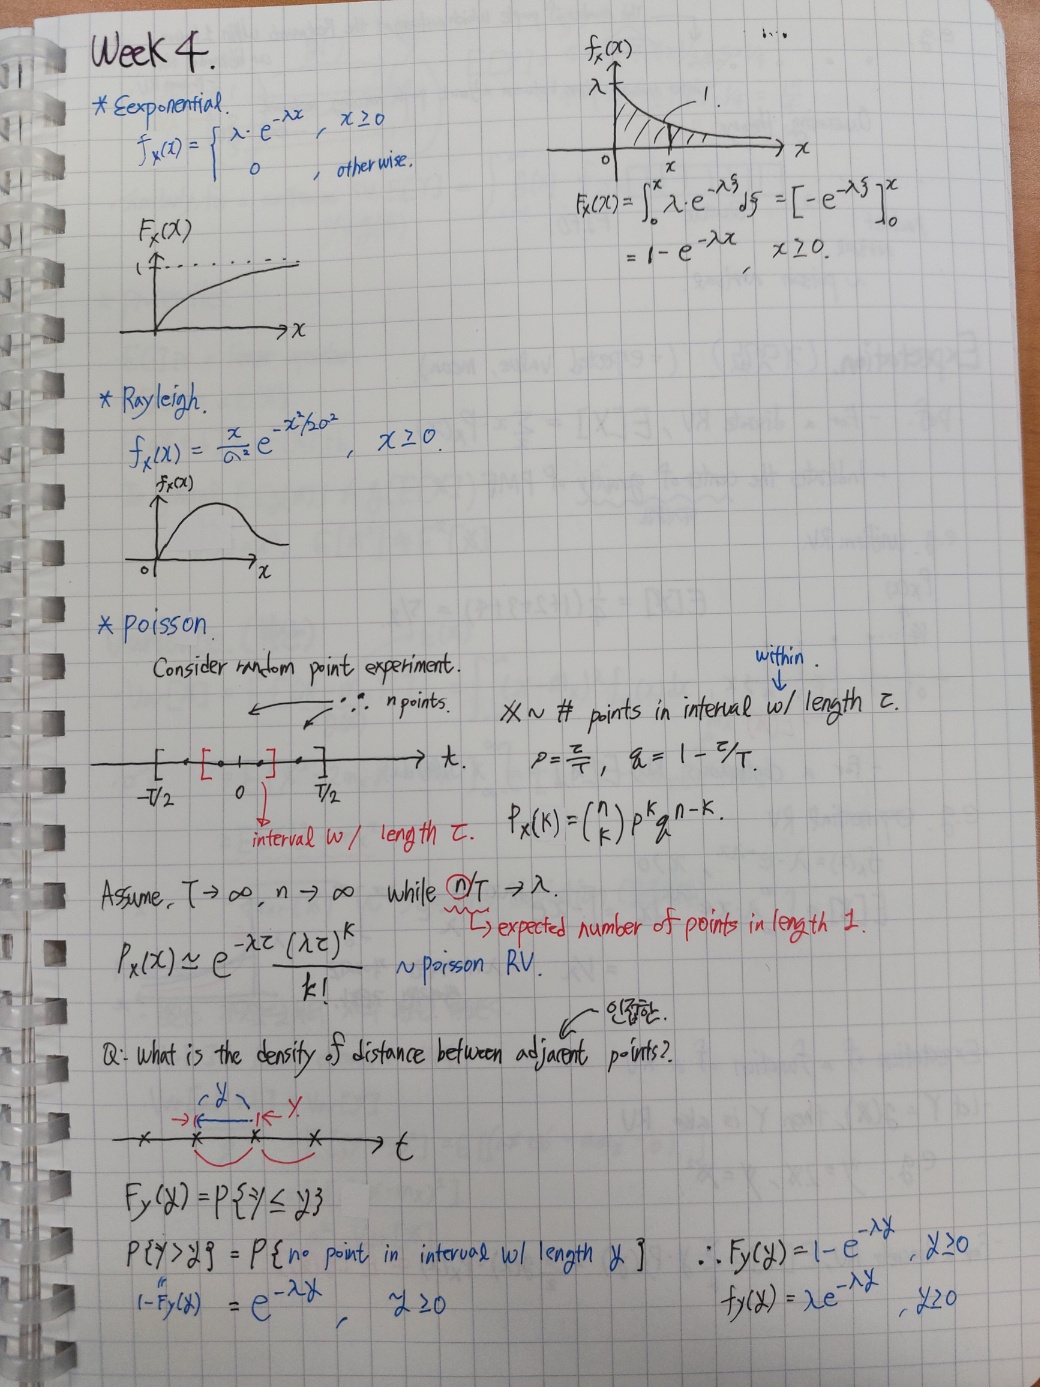 Week 4.
* Eexponential.
fx(x) = { λ·e^-λx , x≥0
0 , otherwise.
fx(x)
λ
1.
0
x
x
Fx(x) = ∫_0^x λ·e^-λξ dξ = [-e^-λξ]_0^x
= 1-e^-λx , x≥0.
Fx(x)
1
x
* Rayleigh.
fx(x) = x/σ² e^-x²/2σ² , x≥0.
fx(x)
0
x
* poisson.
Consider random point experiment.
n points.
t.
-T/2
0
T/2
interval w/ length τ.
within.
X ~ # points in interval w/ length τ.
p = τ/T, q = 1 - τ/T.
Px(k) = (n k) p^k q^n-k.
Assume, T→∞, n→∞ while n/T → λ.
expected number of points in length 1.
Px(x) ≃ e^-λτ (λτ)^k / k! ~ poisson RV.
인접한.
Q: What is the density of distance between adjacent points?
y
Y.
t
Fy(y) = P{Y ≤ y}
P{Y>y} = P{no point in interval w/ length y}
1-Fy(y) = e^-λy , y≥0
∴ Fy(y) = 1-e^-λy , y≥0
fy(y) = λe^-λy , y≥0